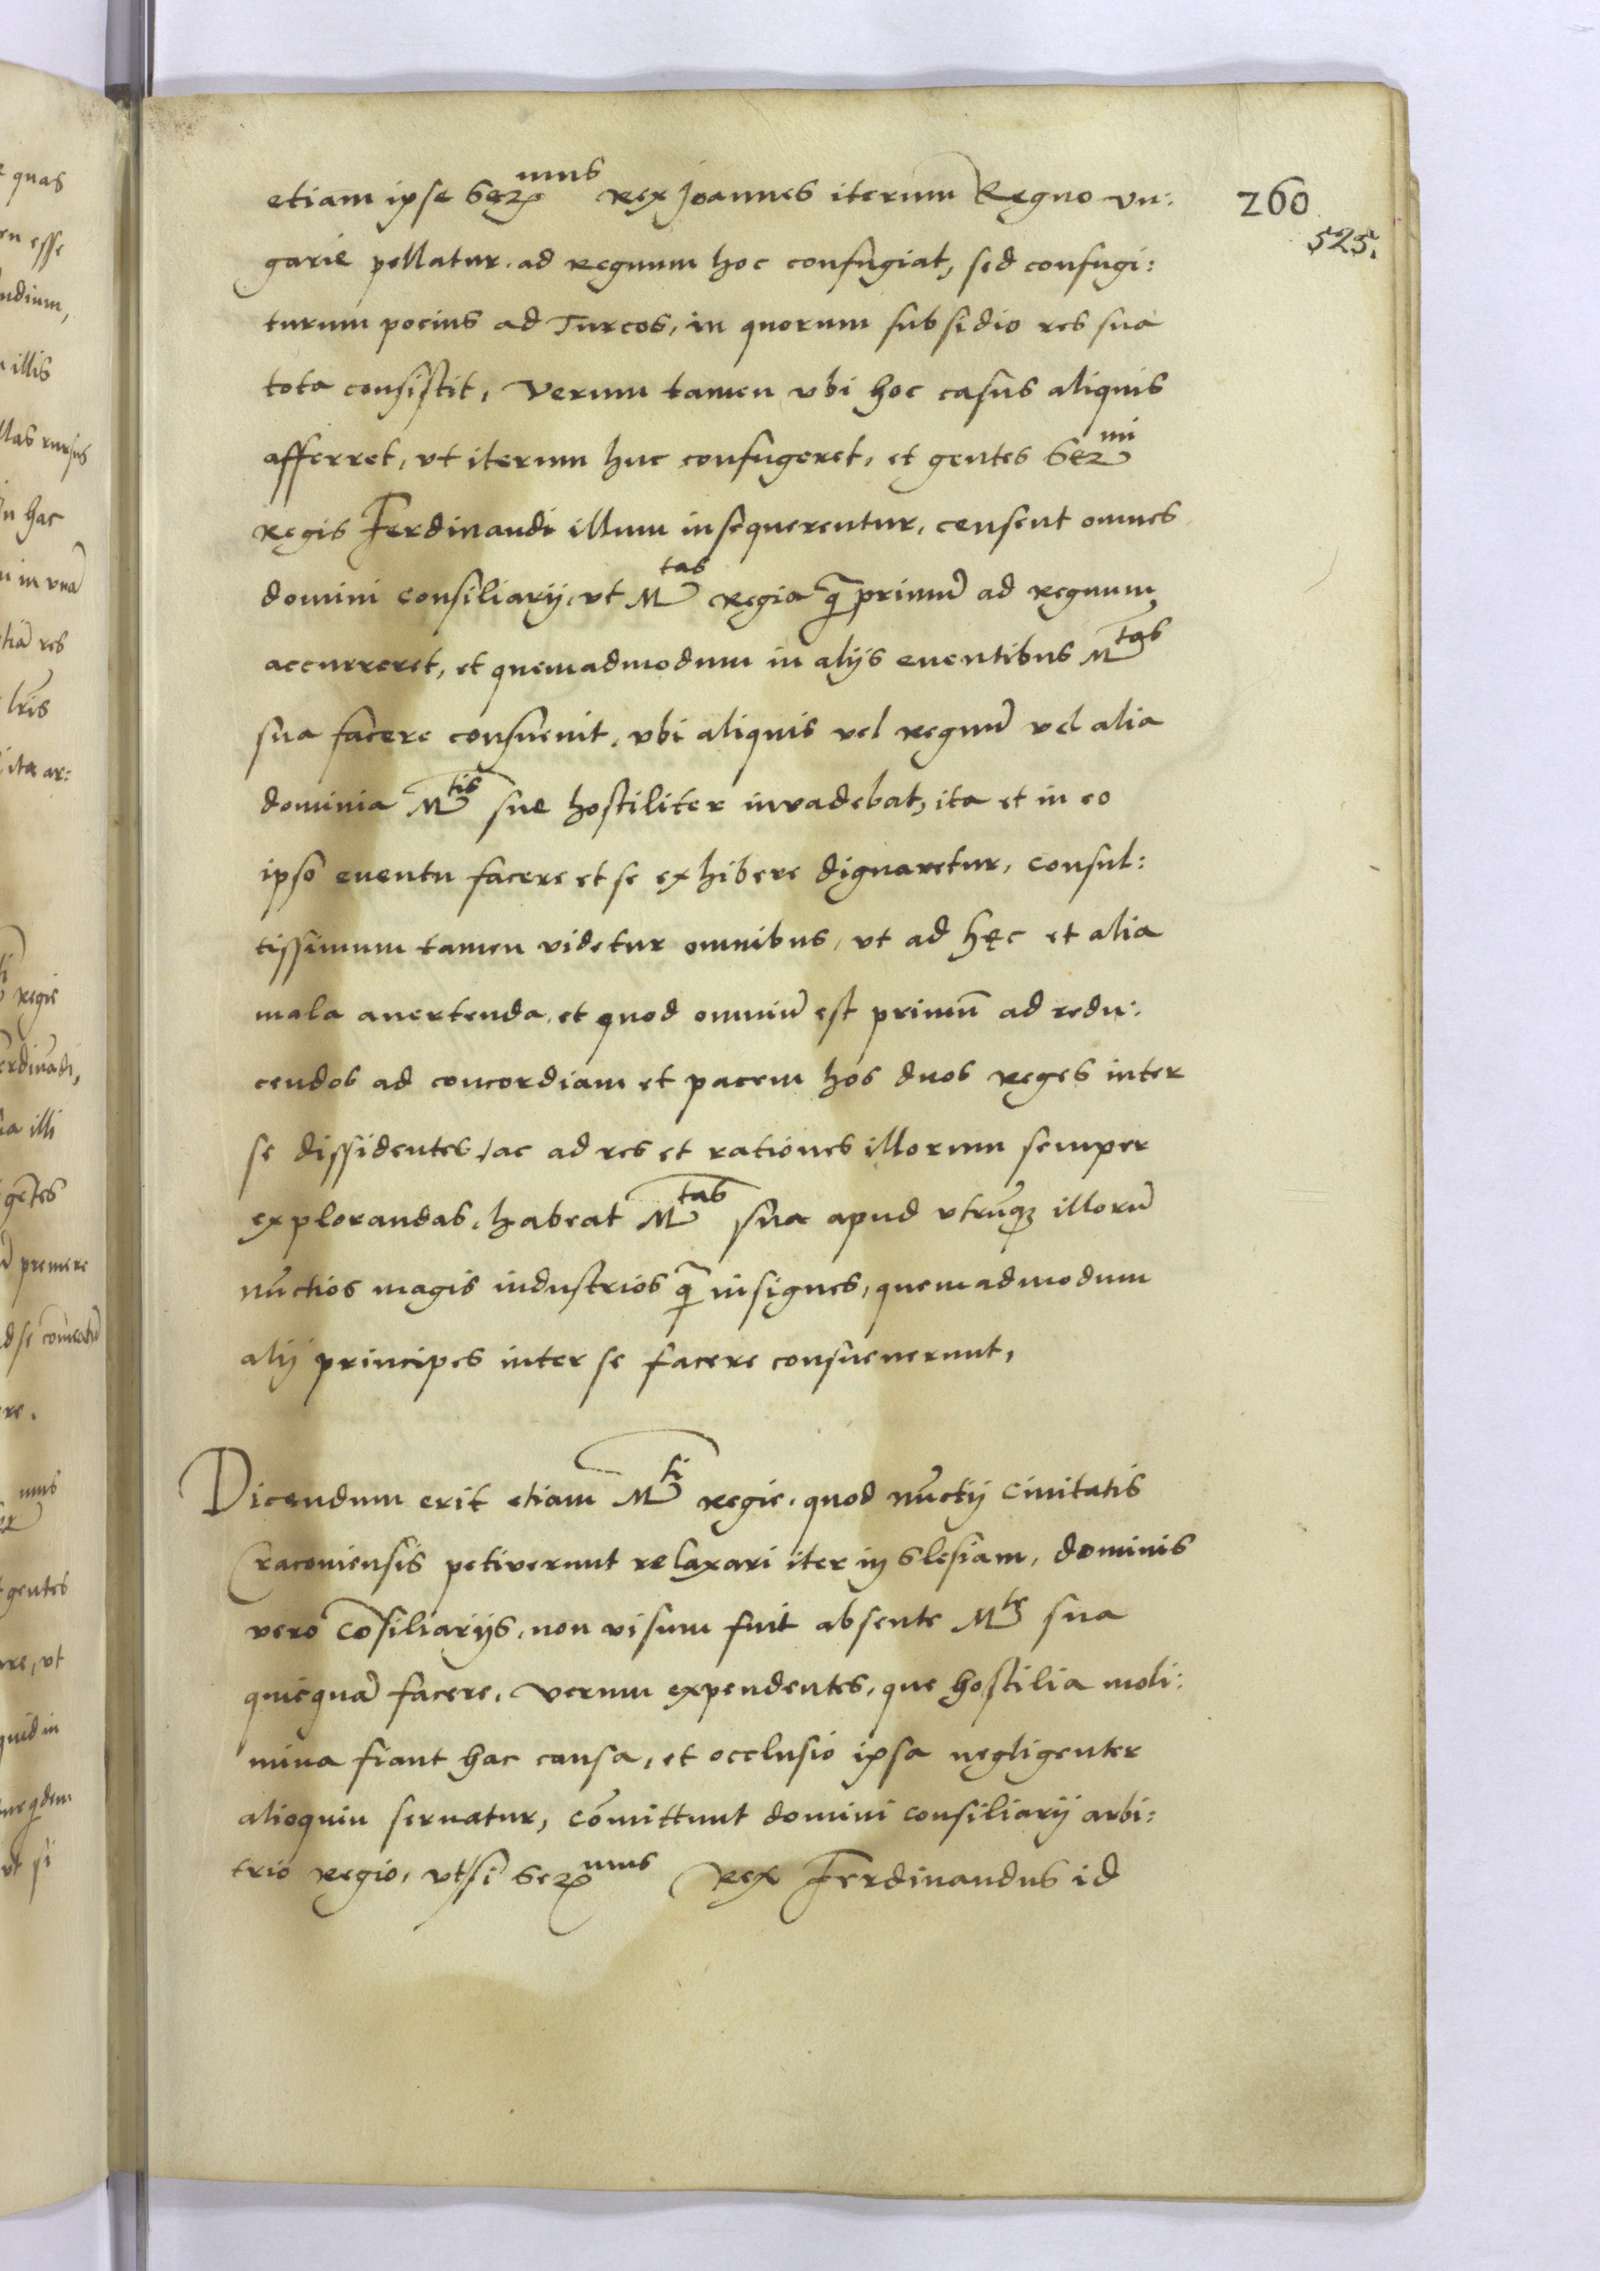 etiam ipse Ser^mus Rex Joannes iterum Regno vn:
garie pellatur, ad regnum hoc confugiat, sed confugi:
turum pocius ad Turcos, in quorum subsidio res sua
tota consistit, Verum tamen vbi hoc casus aliquis
afferret, vt iterum huc confugeret, et gentes Ser^mi
Regis Ferdinandi illum insequerentur, censent omnes
domini consiliarij, vt M^tas Regia q̃ primũ ad regnum
accurreret, et quemadmodum in alijs euentibus M^tas
sua facere consueuit, vbi aliquis vel regnũ vel alia
dominia M^tis sue hostiliter invadebat, ita et in eo
ipso euentu facere et se exhibere dignaretur, consul:
tissimum tamen videtur omnibus, vt ad hęc et alia
mala auertenda, et quod omniũ est primũ ad redu:
cendos ad concordiam et pacem hos duos reges inter
se dissidentes, ac ad res et rationes illorum semper
explorandas, habeat M^tas sua apud vtrũq; illorũ
nũctios magis industrios q̃ insignes, quemadmodum
alij principes inter se facere consueuerunt,
Dicendum erit etiam M^ti regie, quod nũctij Ciuitatis
Cracouiensis petiverunt relaxari iter in Slesiam, dominis
vero cõsiliarijs, non visum fuit absente M^te sua
quicquã facere, verum expendentes, que hostilia moli:
mina fiant hac causa, et occlusio ipsa negligenter
alioquin seruatur, cõmittunt domini consiliarij arbi:
trio regio, vt si Ser^mus Rex Ferdinandus id
260
525.
quas
esse
illis
rursus
hac
in vnã
res
lr̃is
ita ar:
regie
illi
gẽtes
premere
mus
gentes
vt
vt si